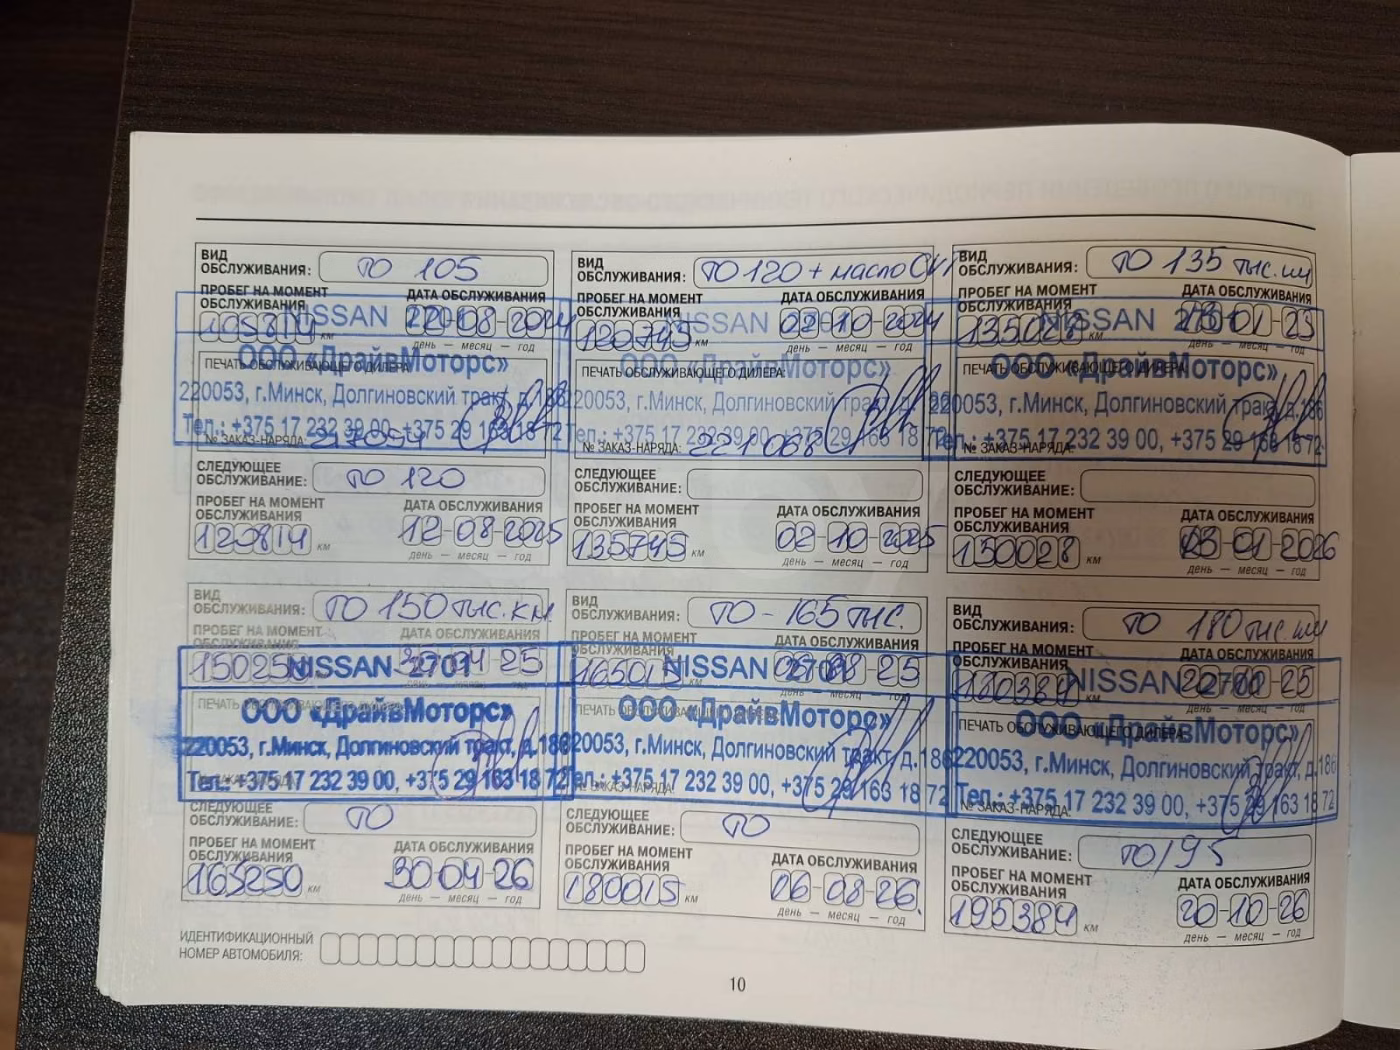 ВИД
ОБСЛУЖИВАНИЯ: ТО 105
ПРОБЕГ НА МОМЕНТ
ОБСЛУЖИВАНИЯ
ДАТА ОБСЛУЖИВАНИЯ
105814 км
NISSAN
08-2024
ПЕЧАТЬ ОБСЛУЖИВАЮЩЕГО ДИЛЕРА
ООО «ДрайвМоторс»
220053, г.Минск, Долгиновский тракт, д.186
Тел.: +375 17 232 39 00, +375 29 163 18 72
№ ЗАКАЗ-НАРЯДА:
СЛЕДУЮЩЕЕ
ОБСЛУЖИВАНИЕ: ТО 120
ПРОБЕГ НА МОМЕНТ
ОБСЛУЖИВАНИЯ
ДАТА ОБСЛУЖИВАНИЯ
120814 км
12-08-2025
день — месяц — год
ВИД
ОБСЛУЖИВАНИЯ: ТО 120 + масло
ПРОБЕГ НА МОМЕНТ
ОБСЛУЖИВАНИЯ
ДАТА ОБСЛУЖИВАНИЯ
120745 км
NISSAN
02-10-2024
день — месяц — год
ПЕЧАТЬ ОБСЛУЖИВАЮЩЕГО ДИЛЕРА
ООО «ДрайвМоторс»
220053, г.Минск, Долгиновский тракт, д.
Тел.: +375 17 232 39 00, +375 29 163 18 72
№ ЗАКАЗ-НАРЯДА: 221068
СЛЕДУЮЩЕЕ
ОБСЛУЖИВАНИЕ:
ПРОБЕГ НА МОМЕНТ
ОБСЛУЖИВАНИЯ
ДАТА ОБСЛУЖИВАНИЯ
135745 км
02-10-2025
день — месяц — год
ВИД
ОБСЛУЖИВАНИЯ: ТО 135 тыс.км
ПРОБЕГ НА МОМЕНТ
ОБСЛУЖИВАНИЯ
ДАТА ОБСЛУЖИВАНИЯ
135028 км
NISSAN
01-23
день — месяц — год
ПЕЧАТЬ ОБСЛУЖИВАЮЩЕГО ДИЛЕРА
ООО «ДрайвМоторс»
220053, г.Минск, Долгиновский тракт, д.186
Тел.: +375 17 232 39 00, +375 29 163 18 72
№ ЗАКАЗ-НАРЯДА:
СЛЕДУЮЩЕЕ
ОБСЛУЖИВАНИЕ:
ПРОБЕГ НА МОМЕНТ
ОБСЛУЖИВАНИЯ
ДАТА ОБСЛУЖИВАНИЯ
150028 км
01-2026
день — месяц — год
ВИД
ОБСЛУЖИВАНИЯ: ТО 150 тыс.км
ПРОБЕГ НА МОМЕНТ
ОБСЛУЖИВАНИЯ
ДАТА ОБСЛУЖИВАНИЯ
150250
NISSAN 2701
30-04-25
ООО «ДрайвМоторс»
220053, г.Минск, Долгиновский тракт, д.186
Тел.: +375 17 232 39 00, +375 29 163 18 72
СЛЕДУЮЩЕЕ
ОБСЛУЖИВАНИЕ: ТО
ПРОБЕГ НА МОМЕНТ
ОБСЛУЖИВАНИЯ
ДАТА ОБСЛУЖИВАНИЯ
165250 км
30-04-26
день — месяц — год
ВИД
ОБСЛУЖИВАНИЯ: ТО - 165 тыс.
ПРОБЕГ НА МОМЕНТ
ОБСЛУЖИВАНИЯ
ДАТА ОБСЛУЖИВАНИЯ
165015
NISSAN 2701
08-25
день — месяц — год
ООО «ДрайвМоторс»
220053, г.Минск, Долгиновский тракт, д.186
Тел.: +375 17 232 39 00, +375 29 163 18 72
№ ЗАКАЗ-НАРЯДА:
СЛЕДУЮЩЕЕ
ОБСЛУЖИВАНИЕ: ТО
ПРОБЕГ НА МОМЕНТ
ОБСЛУЖИВАНИЯ
ДАТА ОБСЛУЖИВАНИЯ
180015 км
06-08-26.
день — месяц — год
ВИД
ОБСЛУЖИВАНИЯ: ТО 180 тыс.км
ПРОБЕГ НА МОМЕНТ
ОБСЛУЖИВАНИЯ
ДАТА ОБСЛУЖИВАНИЯ
NISSAN 2701
25
ПЕЧАТЬ ОБСЛУЖИВАЮЩЕГО ДИЛЕРА
ООО «ДрайвМоторс»
220053, г.Минск, Долгиновский тракт, д.186
Тел.: +375 17 232 39 00, +375 29 163 18 72
№ ЗАКАЗ-НАРЯДА:
СЛЕДУЮЩЕЕ
ОБСЛУЖИВАНИЕ: ТО 195
ПРОБЕГ НА МОМЕНТ
ОБСЛУЖИВАНИЯ
ДАТА ОБСЛУЖИВАНИЯ
195384 км
20-10-26
день — месяц — год
ИДЕНТИФИКАЦИОННЫЙ
НОМЕР АВТОМОБИЛЯ:
10